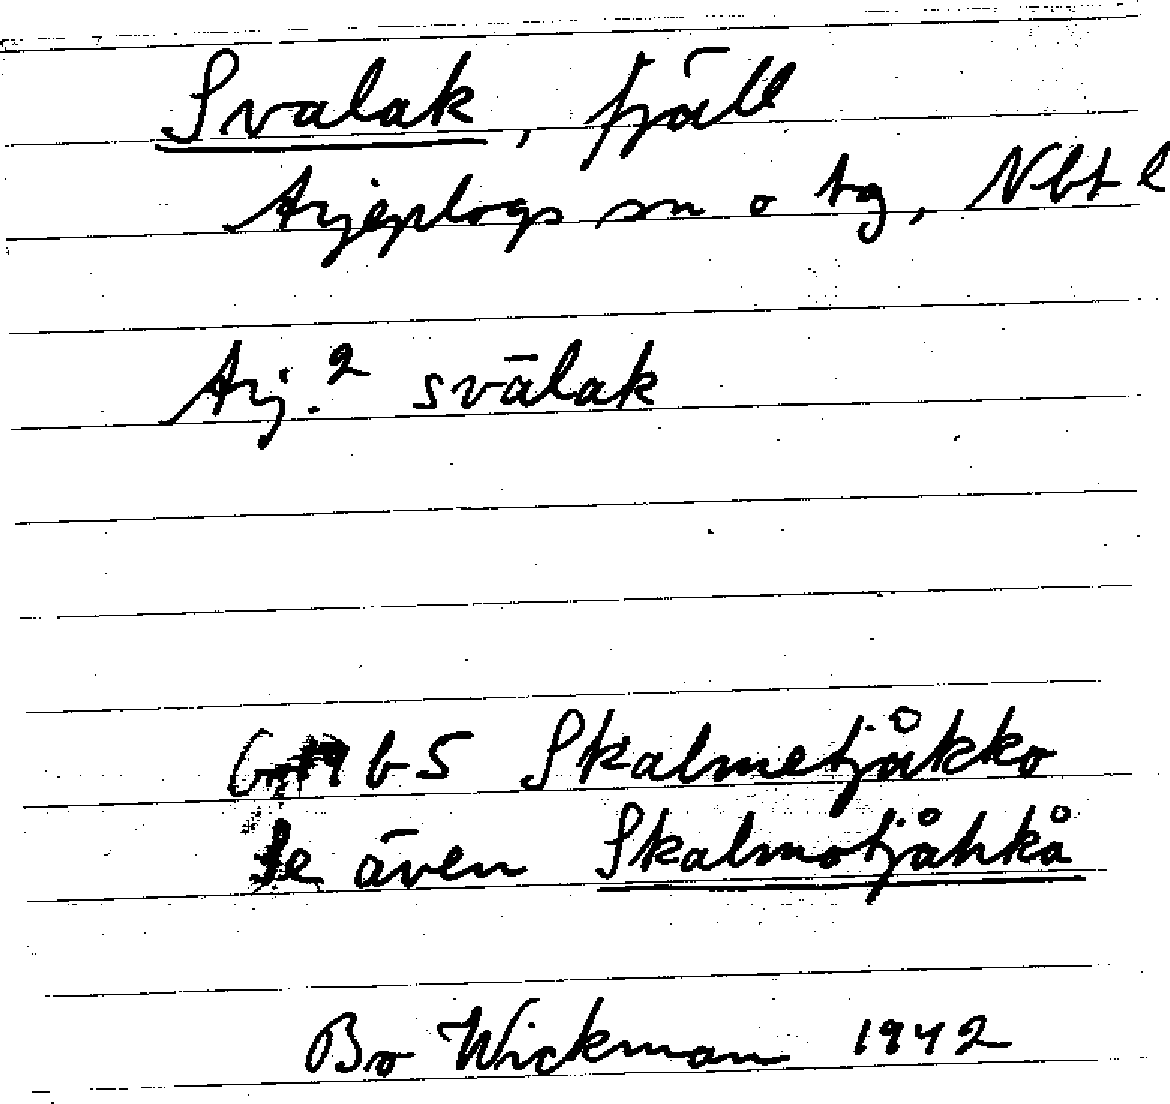 Svalak, fjäll
Arjeplogs sn o tg, Nbt l
Arj.2 svālak
b5 Skalmetjåkko
Se även Skalmotjåhkå
Bo Wickman 1942